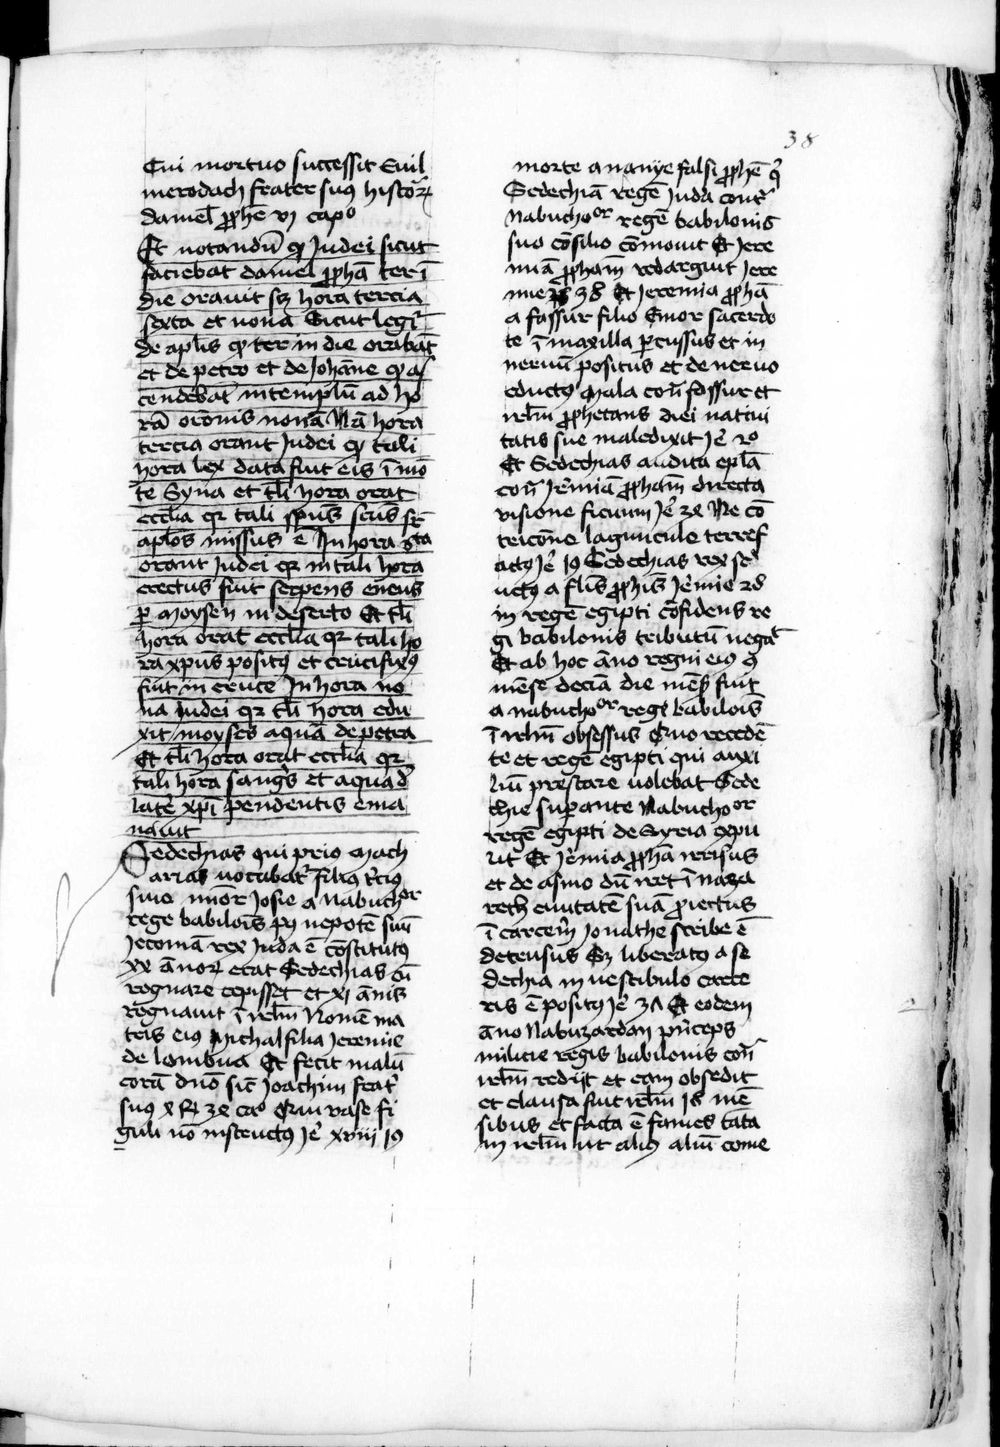 38
Cui mortuo successit Euil
merodach frater suus histor
daniel prophe vi capo
Et notandu qd Judei sicut
faciebat daniel propha ter i
die orauit scz hora tercia
sexta et nona Sicut legit
de aplis qd ter in die orabat
et de petro et de Johane qd as
cendebat in templu ad ho
ra oronis nona Na hora
tercia orant Judei qr tali
hora lex data fuit eis i mo
te Syna et tli hora orat
ecclia qr tali spus scus sr
aplos missus e In hora sta
orant Judei qr in tali hora
erectus fuit serpens eneus
p moysen in deserto Et tli
hora orat ecclia qr tali ho
ra xpus positus et crucifixus
fuit in cruce In hora no
na Judei qr tli hora edu
xit moyses aqua de petra
Et tli hora orat ecclia qr
tali hora sangs et aqua d
late xpi pendentis ema
nauit
Sedechias qui prio Mach
arias uocabat filius tcius
siue iunor Josie a Nabuchor
rege babilois p nepote suu
Jeconia rex Juda e constitutus
xx annor erat Sedechias cu
regnare cepisset et xi annis
regnauit i irlm Nome ma
tris eius Michal filia Jeremie
de lombna Et fecit malu
cora dno sic Joachim frat
suus
guli no instructus Je xviii 19
morte ananye falsi prophe q
Sedechia rege Juda cont
Nabuchoor rege babilonis
suo consilio comouit Et Jere
mia propham redarguit Jere
mie 38 Et Jeremia propha
a fassur filio Emor sacerdo
te i maxilla percussus et in
neruu positus et de neruo
eductus Mala con fassur et
irlm prophetans diei natiui
tatis sue maledixit Je 20
Et Sedechias audita epla
con Jermia propham directa
visione ficuum Je Ne co
teicone laguncule terref
actus Je 19 Sedechias rex se
uctus a flis prophis Jermie
in rege egipti confidens re
gi babilonis tributu negat
Et ab hoc anno regni eius
mense decia die mens fuit
a nabuchoor rege babilois
i irlm obsessus Quo recede
te et rege egipti qui auxi
liu prestare uolebat Sede
chie superante Nabuchoor
rege egipti de Syria
rit Et Jermia propha irrisus
et de asino du iret i naza
reth ciuitate sua proiectus
i carcerm Jonathe scribe e
detensus Sz liberatus a se
dechia in uestibulo carce
ris e positus Je 37 Et eodem
anno Nabuzardan princeps
milicie regis babilonis con
irlm redijt et eam obsedit
et clausa fuit irlm 18 men
sibus et facta e fames tanta
in irlm ut alius aliu come